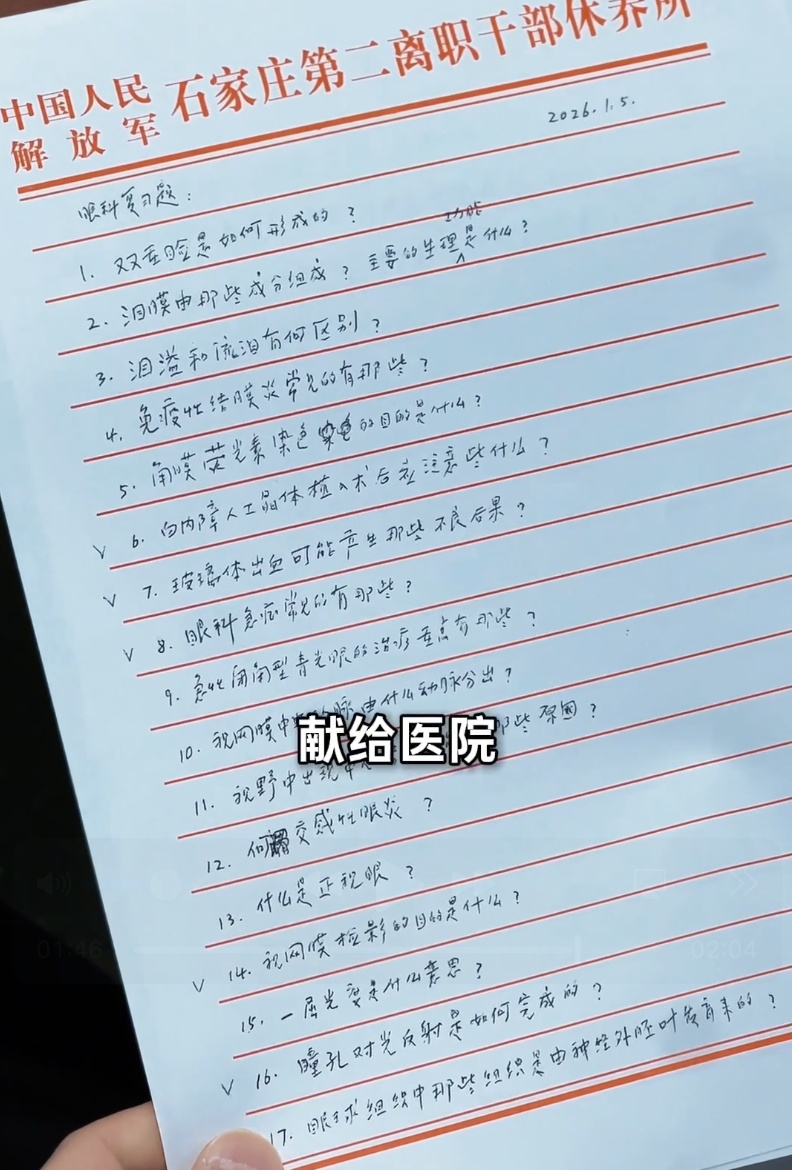 中国人民解放军 石家庄第二离职干部休养所
2026.1.5.
眼科复习题：
1. 双重睑是如何形成的？
2. 泪膜由那些成分组成？主要的生理功能是什么？
3. 泪溢和流泪有何区别？
4. 免疫性结膜炎常见的有那些？
5. 角膜荧光素染色的目的是什么？
∨ 6. 白内障人工晶体植入术后应注意些什么？
∨ 7. 玻璃体出血可能产生那些不良后果？
∨ 8. 眼科急症常见的有那些？
9. 急性闭角型青光眼的治疗重点有那些？
10. 视网膜中 动脉由什么动脉分出？
献给医院
11. 视野中出现中 那些原因？
12. 何谓交感性眼炎？
13. 什么是正视眼？
∨ 14. 视网膜检影的目的是什么？
15. 一屈光度是什么意思？
∨ 16. 瞳孔对光反射是如何完成的？
17. 眼球组织中那些组织是由神经外胚叶发育来的？
01:46
02:04